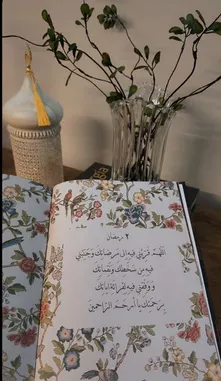 ٢ رمضان
اللهم قربني فيه إلى مرضاتك وجنبني
فيه من سخطك ونقماتك
ووفقني فيه لقراءة آياتك
برحمتك يا أرحم الراحمين